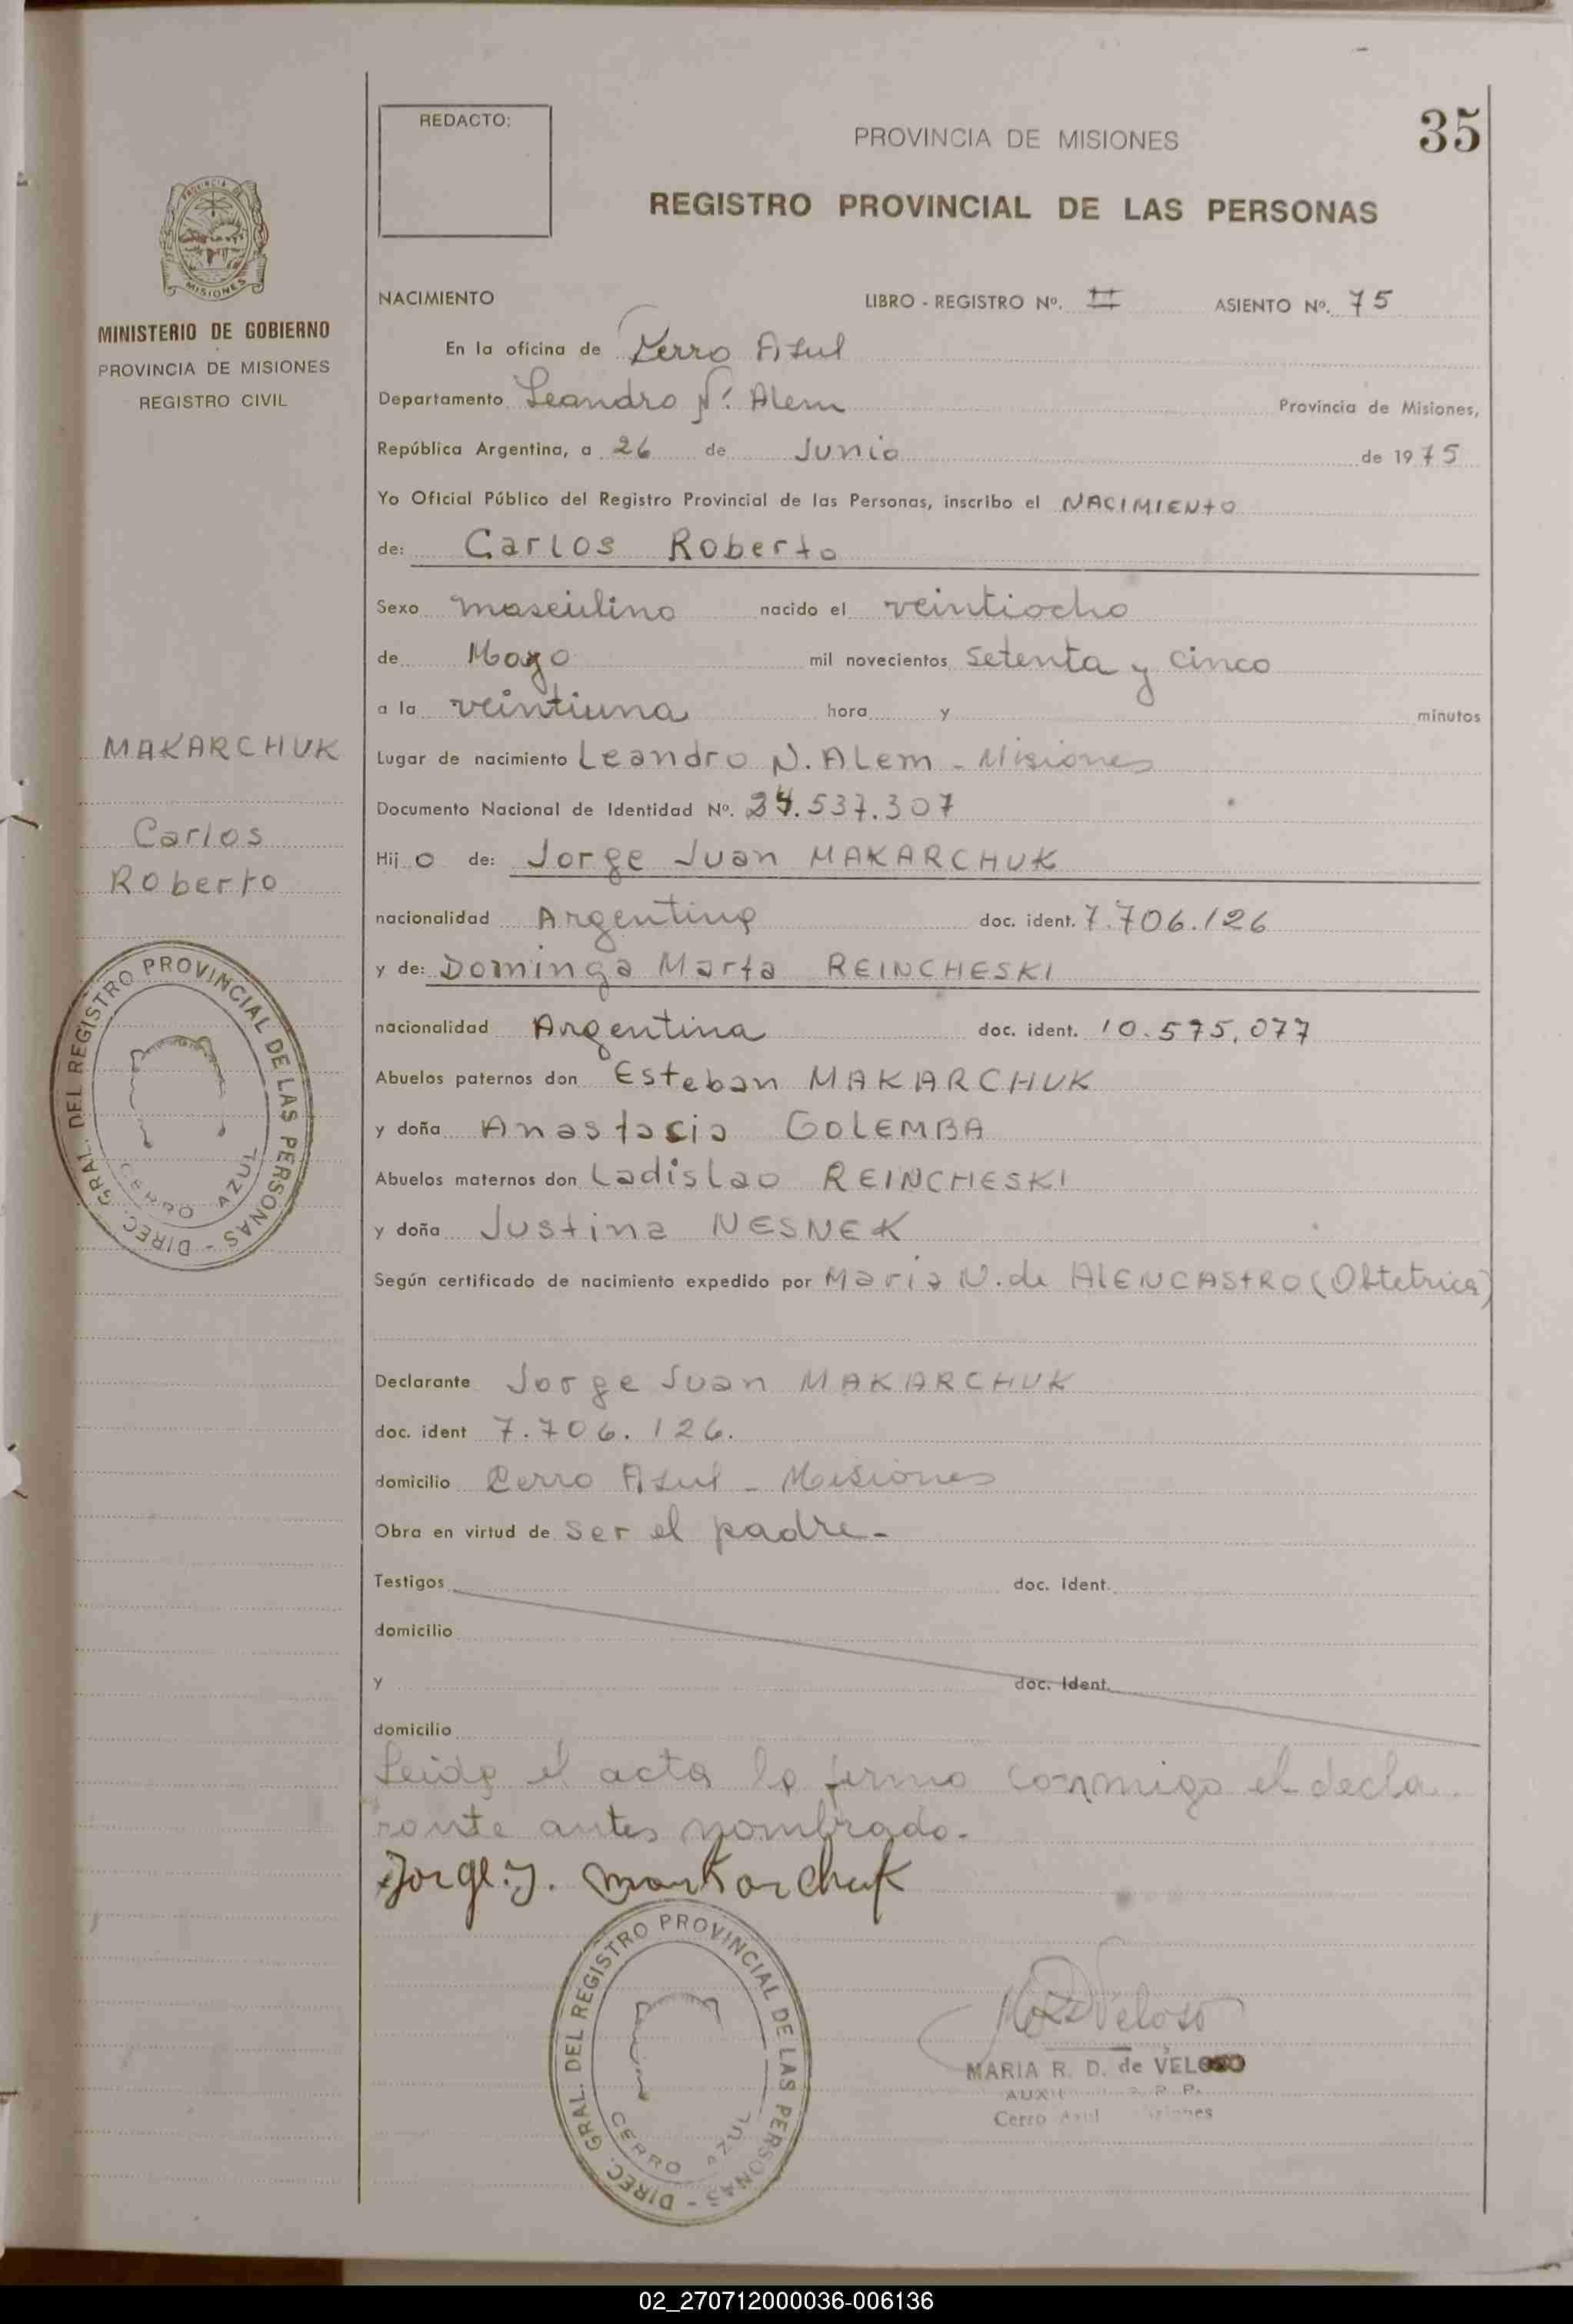 REDACTO:
PROVINCIA DE MISIONES
35
REGISTRO PROVINCIAL DE LAS PERSONAS
PROVINCIA DE
MISIONES
MINISTERIO DE GOBIERNO
PROVINCIA DE MISIONES
REGISTRO CIVIL
NACIMIENTO LIBRO - REGISTRO Nº. II ASIENTO Nº. 75
En la oficina de Cerro Azul
Departamento Leandro N. Alem Provincia de Misiones,
República Argentina, a 26 de Junio de 1975
Yo Oficial Público del Registro Provincial de las Personas, inscribo el NACIMIENTO
de: Carlos Roberto
Sexo masculino nacido el veintiocho
de Mayo mil novecientos setenta y cinco
a la veintiuna hora y minutos
MAKARCHUK
Carlos
Roberto
Lugar de nacimiento Leandro N. Alem - Misiones
Documento Nacional de Identidad Nº. 24.537.307
Hijo de: Jorge Juan MAKARCHUK
nacionalidad Argentino doc. ident. 7.706.126
y de: Dominga Marta REINCHESKI
nacionalidad Argentina doc. ident. 10.575.077
Abuelos paternos don Esteban MAKARCHUK
y doña Anastacia GOLEMBA
Abuelos maternos don Ladislao REINCHESKI
y doña Justina NESNEK
Según certificado de nacimiento expedido por Maria N. de ALENCASTRO (Obtetrica)
DIREC. GRAL. DEL REGISTRO PROVINCIAL DE LAS PERSONAS -
CERRO AZUL
Declarante Jorge Juan MAKARCHUK
doc. ident 7.706.126.
domicilio Cerro Azul - Misiones
Obra en virtud de ser el padre-
Testigos doc. ident.
domicilio
y doc. ident.
domicilio
Leida el acta la firma conmigo el decla-
rante antes nombrado.
Jorge. J. Markarchuk
DIREC. GRAL. DEL REGISTRO PROVINCIAL DE LAS PERSONAS -
CERRO AZUL
MARIA R. D. de VELOSO
R. P.
Cerro Azul Misiones
02_270712000036-006136